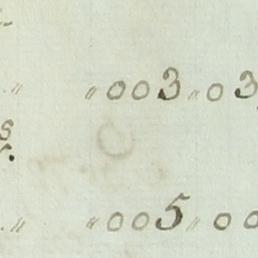 〃 〃003〃03
s
r.
〃 〃005〃00